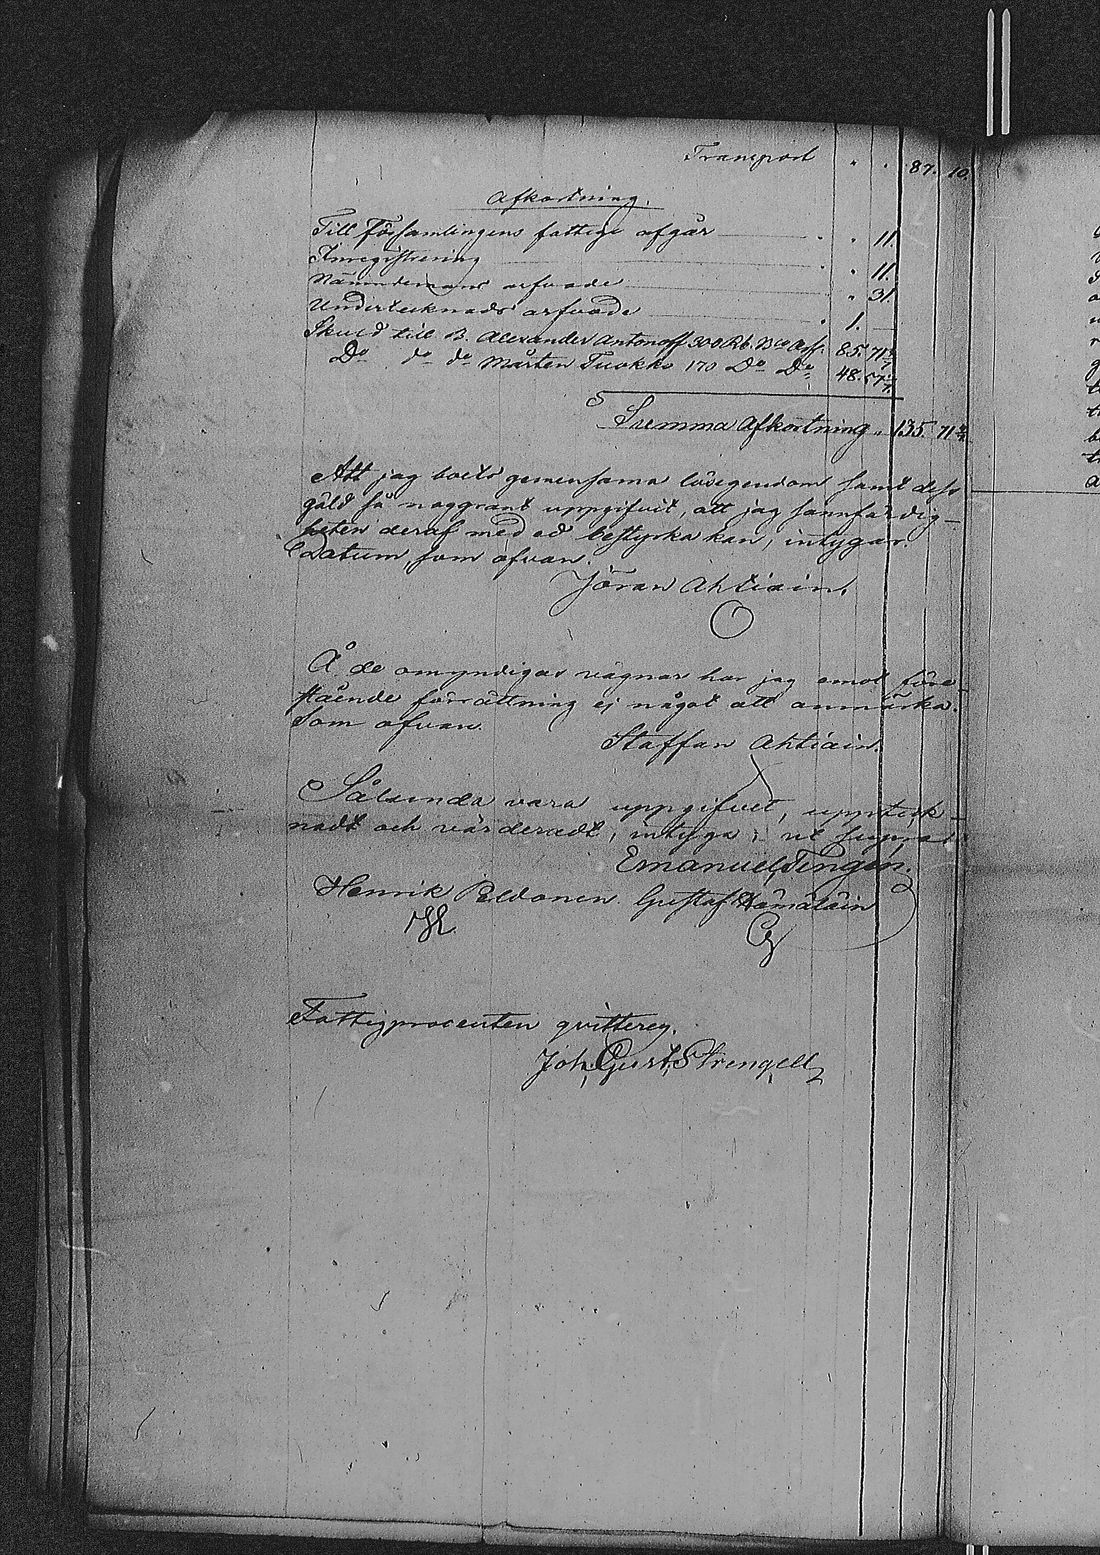 Transport " " 87. 10.
Afkortning.
Till Församlingens fattige afgår " " 11.
Inregistrering " " 11.
Nämndemans arfvode " 31.
Undertecknads arfvode " 1. —
Skuld till B. Alexander Antonoff 300 Rb. Bco Ass. 85. 71 3/7
Do do do Mårten Tuokko 170 Do Do 48. 57 1/7
Summa Afkortning " 135. 71 4/7
Att jag boets gemensama lösegendom samt dess
gäld så noggrant uppgifvit, att jag sannfärdig-
heten deraf med ed bestyrka kan, intygar.
Datum, som ofvan.
Jöran Ahtiain.
Å de omyndigas vägnar har jag emot före-
stående förrättning ej något att anmärka.
Som ofvan.
Staffan Ahtiain.
Sålunda vara uppgifvet, uppteck-
nadt och värderadt, intyga; ut supra
Emanuel Tengén.
Henrik Peldonen. Gustaf Hämäläin
Fattigprocenten qvitterey.
Joh. Gust. Strengell